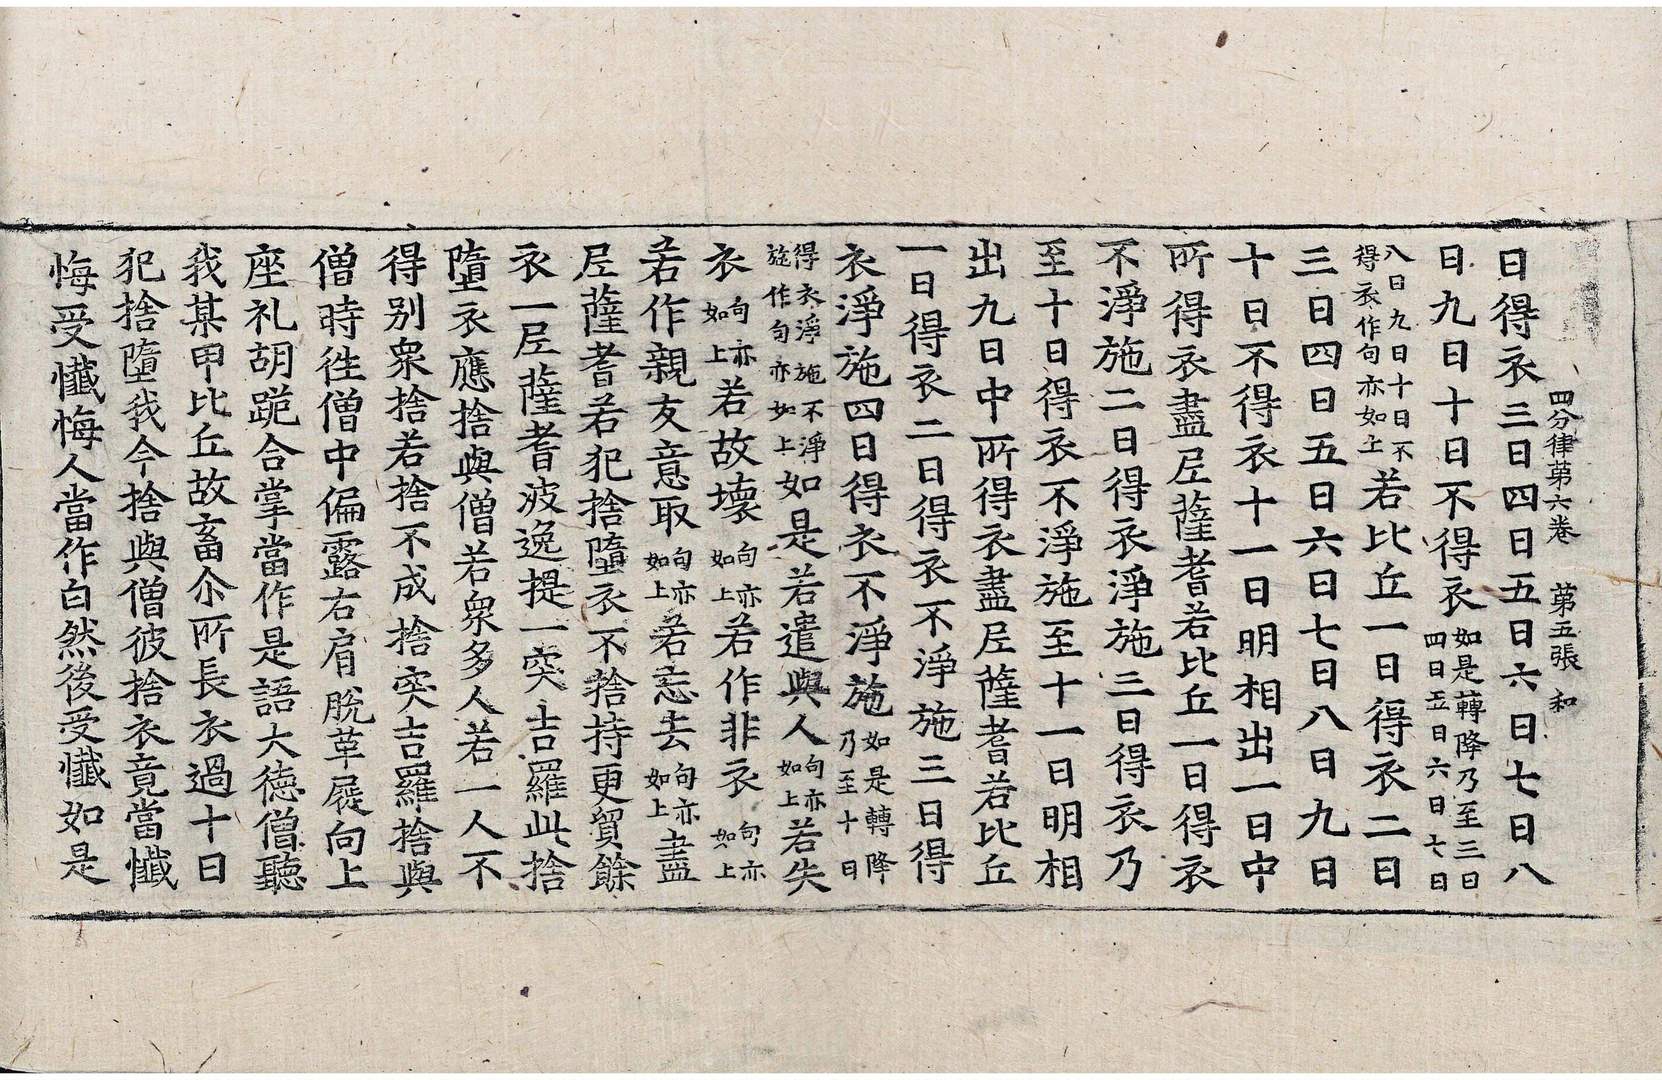 四分律苐六卷 苐五張 和
日得衣三日四日五日六日七日八
日九日十日不得衣如是轉降乃至三日四日五日六日七日
八日九日十日不得衣作句亦如上若比丘一日得衣二日
三日四日五日六日七日八日九日
十日不得衣十一日明相出一日中
所得衣盡尼薩耆若比丘一日得衣
不淨施二日得衣淨施三日得衣乃
至十日得衣不淨施至十一日明相
出九日中所得衣盡尼薩耆若比丘
一日得衣二日得衣不淨施三日得
衣淨施四日得衣不淨施如是轉降乃至十日
得衣淨施不淨施作句亦如上如是若遣與人句亦如上若失
衣句亦如上若故壞句亦如上若作非衣句亦如上
若作親友意取句亦如上若忘去句亦如上盡
尼薩耆若犯捨墮衣不捨持更貿餘
衣一尼薩耆波逸提一突吉羅此捨
墮衣應捨與僧若衆多人若一人不
得别衆捨若捨不成捨突吉羅捨與
僧時徃僧中偏露右肩脫革屣向上
座礼胡跪合掌當作是語大德僧聽
我某甲比丘故畜尒所長衣過十日
犯捨墮我今捨與僧彼捨衣竟當懺
悔受懺悔人當作白然後受懺如是